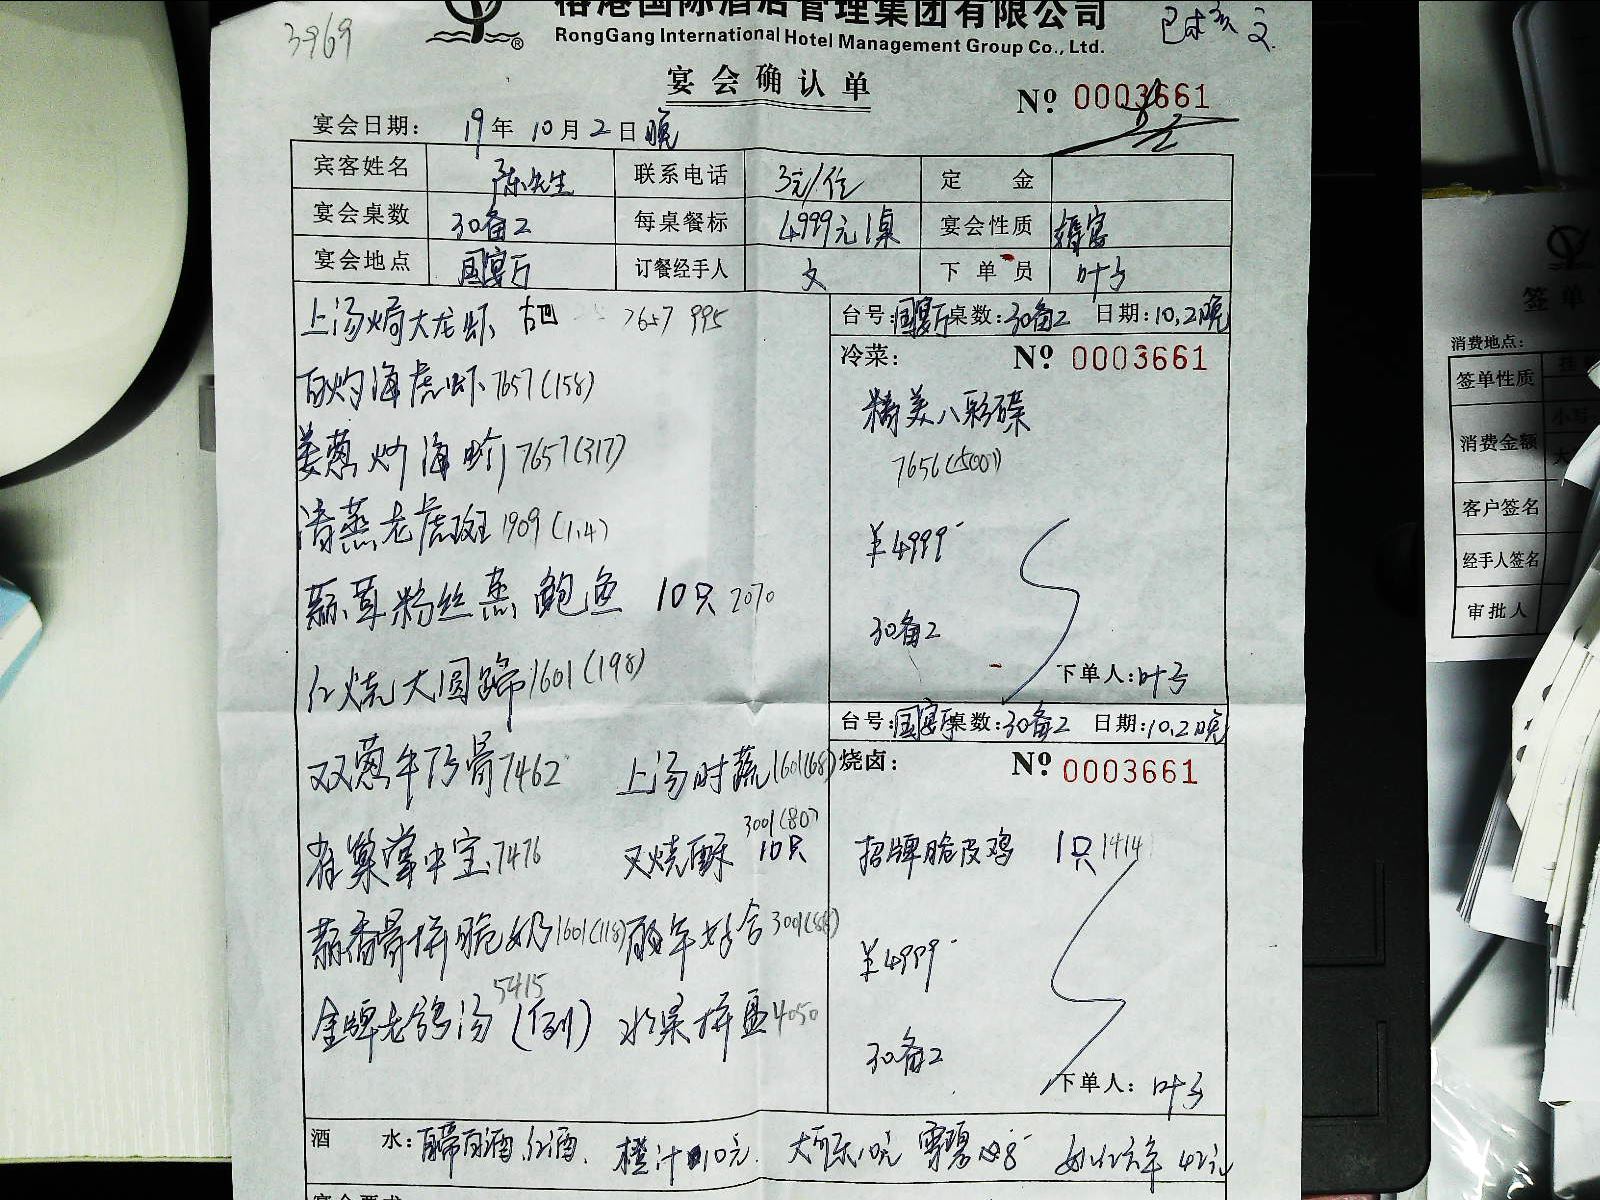 3969
榕港国际酒店管理集团有限公司
RongGang International Hotel Management Group Co., Ltd.
宴会确认单
Nº 0003661
宴会日期: 19年10月2日晚
宾客姓名 陈先生 联系电话 3元/位 定金
宴会桌数 30备2 每桌餐标 4999元/桌 宴会性质 婚宴
宴会地点 国宴厅 订餐经手人 文 下单员 叶
上汤焗大龙虾 7657 995
白灼海虎虾 7657(158)
姜葱炒海 7657(317)
清蒸老虎斑 1909(1.4)
蒜茸粉丝蒸鲍鱼 10只 2070
红烧大圆蹄 1601(198)
双葱牛仔骨 7462 上汤时蔬 1601(68)
雀巢掌中宝 7476 叉烧酥 10只 3001(80)
蒜香骨拼脆奶 1601(118) 百年好合 3001(88)
金牌老鸽汤(例) 5415 水果拼盘 4050
台号: 国宴厅 桌数: 30备2 日期: 10.2晚
冷菜: Nº 0003661
精美八彩碟
7656(500)
¥4999-
30备2
下单人: 叶
台号: 国宴厅 桌数: 30备2 日期: 10.2晚
烧卤: Nº 0003661
招牌脆皮鸡 1只 1414
¥4999-
30备2
下单人: 叶
酒水: 自带白酒、红酒、橙汁10元 大可乐10元 雪碧 8 42元
签单
消费地点:
签单性质
消费金额
客户签名
经手人签名
审批人